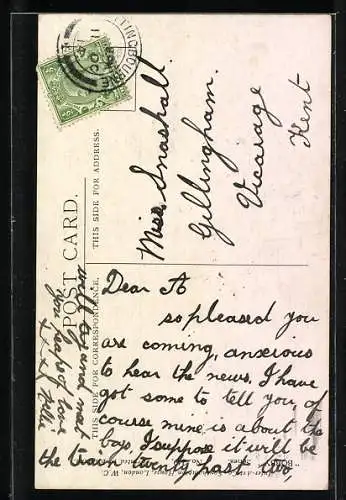 POST CARD.
THIS SIDE FOR CORRESPONDENCE.
THIS SIDE FOR ADDRESS.
Miss Snashall.
Gillingham.
Vicarage
Kent
Dear A
so pleased you
are coming, anxious
to hear the news. I have
got some to tell you of
course mine is about the
boys, I suppose it will be
the train twenty past two,
will of and meet
you heaps of love